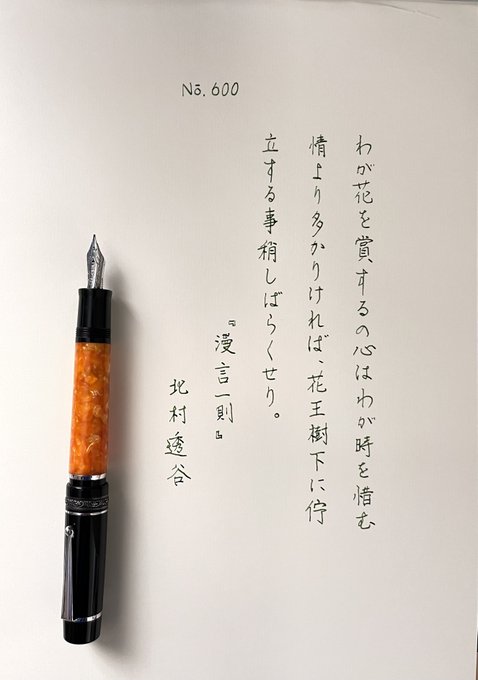 No. 600
わが花を賞するの心はわが時を惜む
情より多かりければ、花王樹下に佇
立する事稍しばらくせり。
『漫言一則』
北村透谷